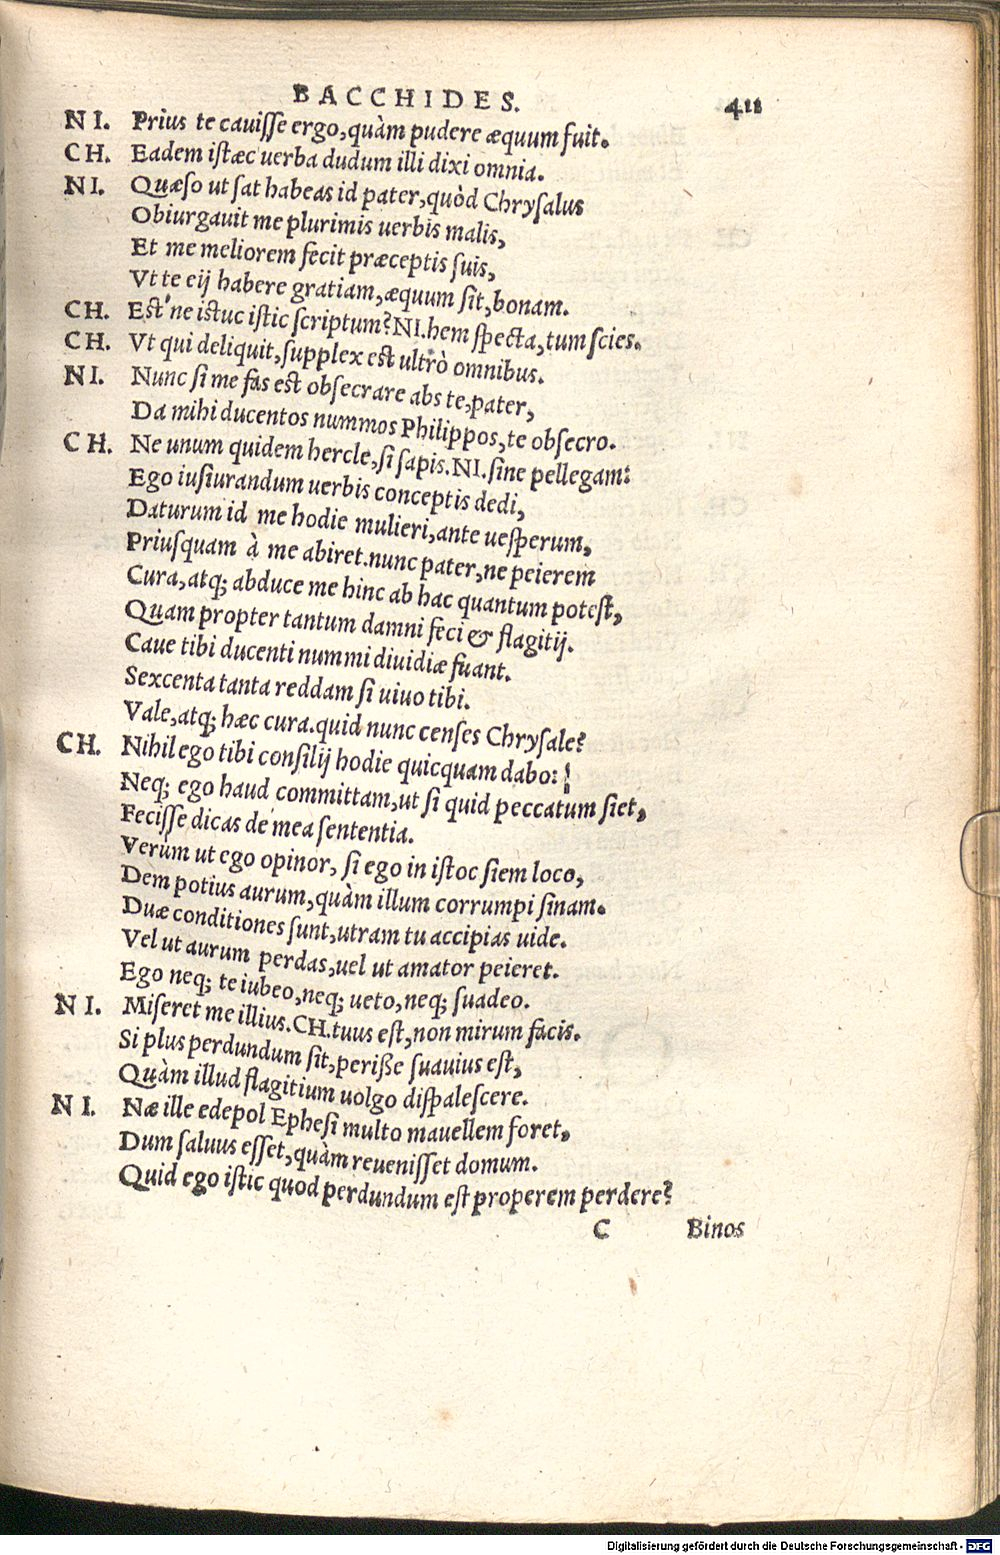 BACCHIDES. 411
NI. Prius te cauisse ergo, quàm pudere æquum fuit.
CH. Eadem istæc uerba dudum illi dixi omnia.
NI. Quæso ut sat habeas id pater, quòd Chrysalus
Obiurgauit me plurimis uerbis malis,
Et me meliorem fecit præceptis suis,
Vt te eij habere gratiam, æquum sit, bonam.
CH. Est'ne istuc istic scriptum? NI. hem specta, tum scies.
CH. Vt qui deliquit, supplex est ultrò omnibus.
NI. Nunc si me fas est obsecrare abs te, pater,
Da mihi ducentos nummos Philippos, te obsecro.
CH. Ne unum quidem hercle, si sapis. NI. sine pellegam:
Ego iusiurandum uerbis conceptis dedi,
Daturum id me hodie mulieri, ante uesperum,
Priusquam à me abiret. nunc pater, ne peierem
Cura, atq; abduce me hinc ab hac quantum potest,
Quam propter tantum damni feci & flagitij.
Caue tibi ducenti nummi diuidiæ fuant.
Sexcenta tanta reddam si uiuo tibi.
Vale, atq; hæc cura. quid nunc censes Chrysale?
CH. Nihil ego tibi consilij hodie quicquam dabo:
Neq; ego haud committam, ut si quid peccatum siet,
Fecisse dicas de mea sententia.
Verùm ut ego opinor, si ego in istoc siem loco,
Dem potius aurum, quàm illum corrumpi sinam.
Duæ conditiones sunt, utram tu accipias uide.
Vel ut aurum perdas, uel ut amator peieret.
Ego neq; te iubeo, neq; ueto, neq; suadeo.
NI. Miseret me illius. CH. tuus est, non mirum facis.
Si plus perdundum sit, perisse suauius est,
Quàm illud flagitium uolgo dispalescere.
NI. Næ ille edepol Ephesi multo mauellem foret,
Dum saluus esset, quàm reuenisset domum.
Quid ego istic quod perdundum est properem perdere?
C Binos
Digitalisierung gefördert durch die Deutsche Forschungsgemeinschaft - DFG